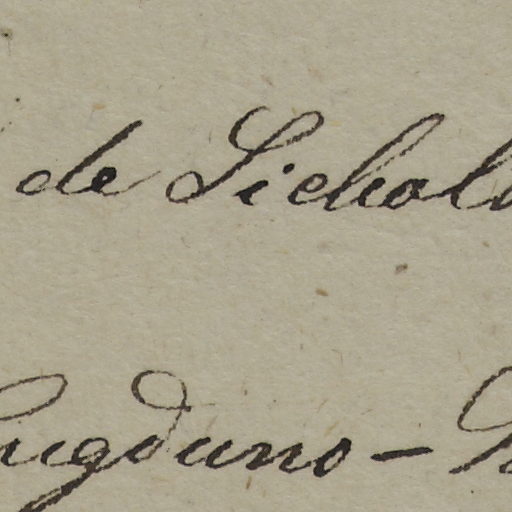 de Siebold
Lugduno -